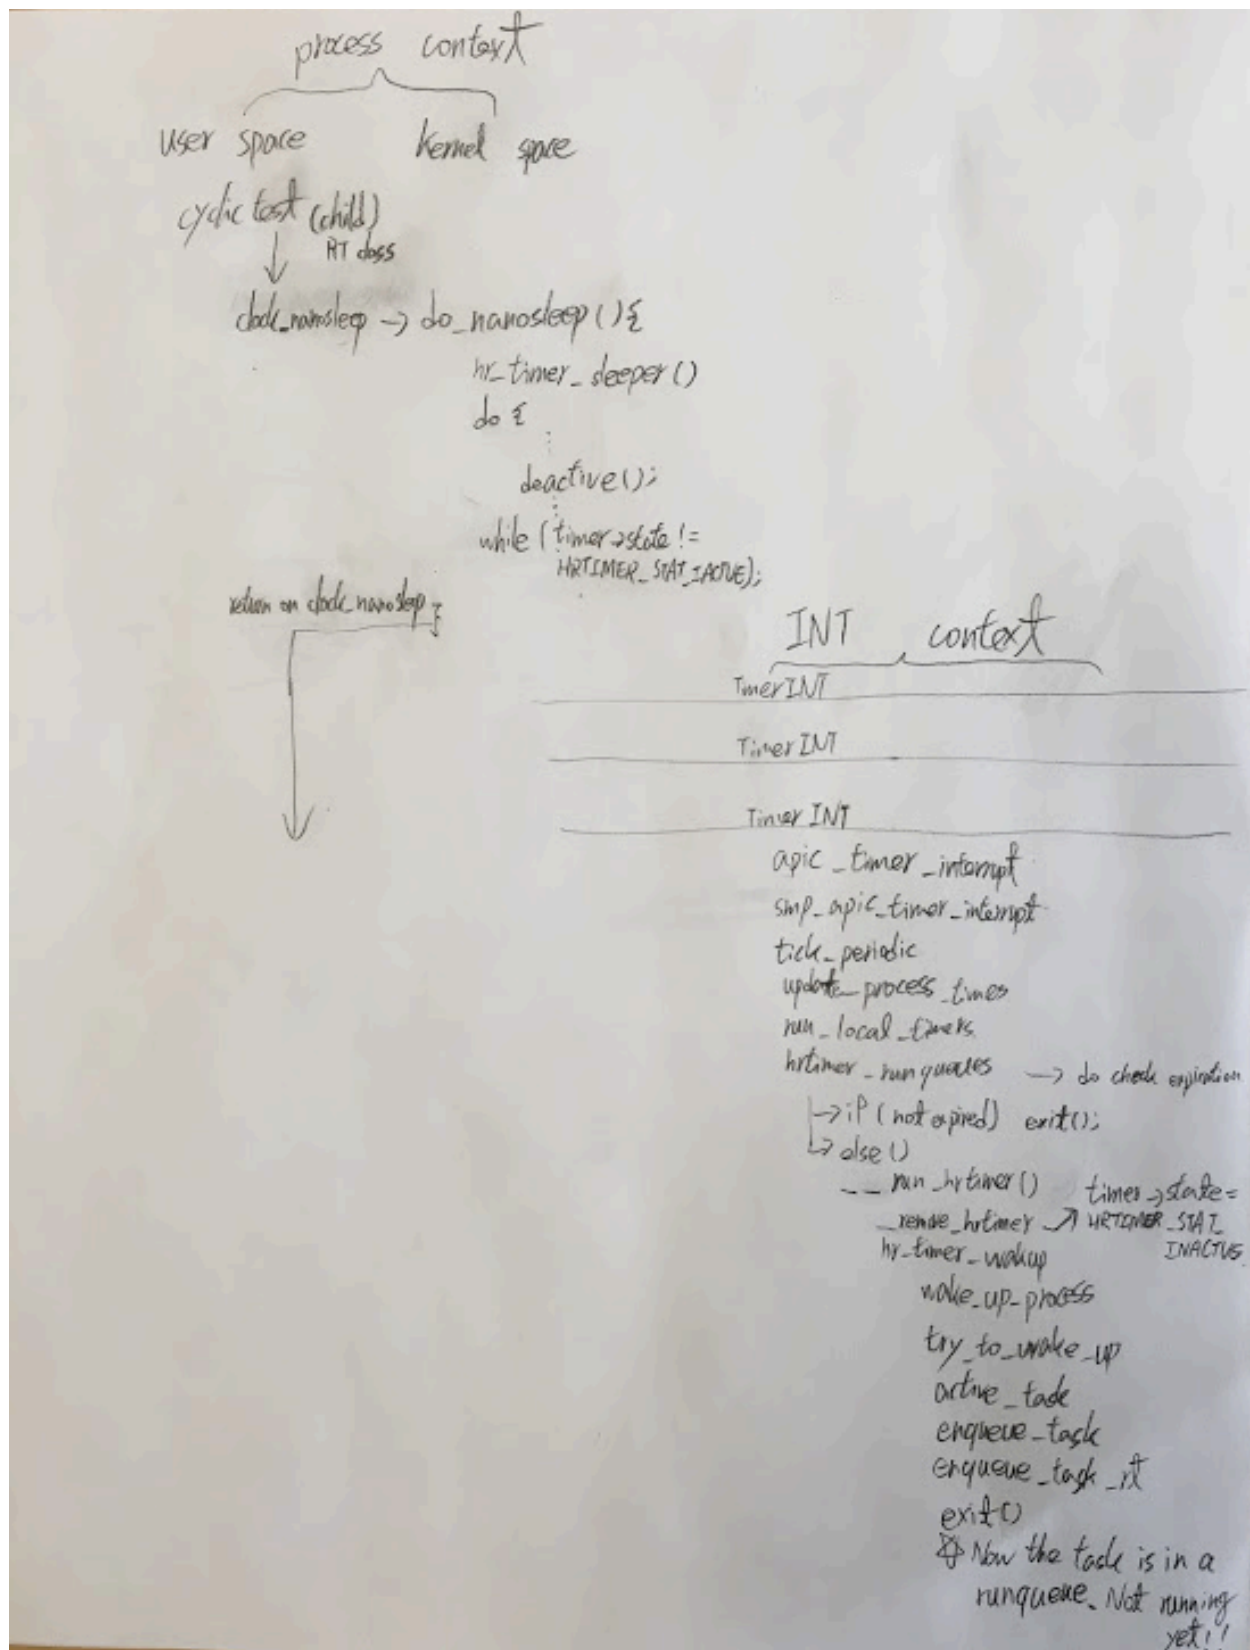 process context
user space kernel space
cyclic test (child)
RT class
clock_nanosleep → do_nanosleep () {
hr_timer_sleeper ()
do {
deactive();
while (timer→state !=
HRTIMER_STAT_IACTIVE);
return on clock_nanosleep }
INT context
Timer INT
Timer INT
Timer INT
apic_timer_interrupt
smp_apic_timer_interrupt
tick_periodic
update_process_times
run_local_timers
hrtimer_runqueues → do check expiration
→ if (not expired) exit();
→ else ()
__run_hrtimer() timer→state =
_remove_hrtimer ↗ HRTIMER_STAT_
INACTIVE
hr_timer_wakup
wake_up_process
try_to_wake_up
active_task
enqueue_task
enqueue_task_rt
exit()
☆ Now the task is in a
runqueue. Not running
yet!!